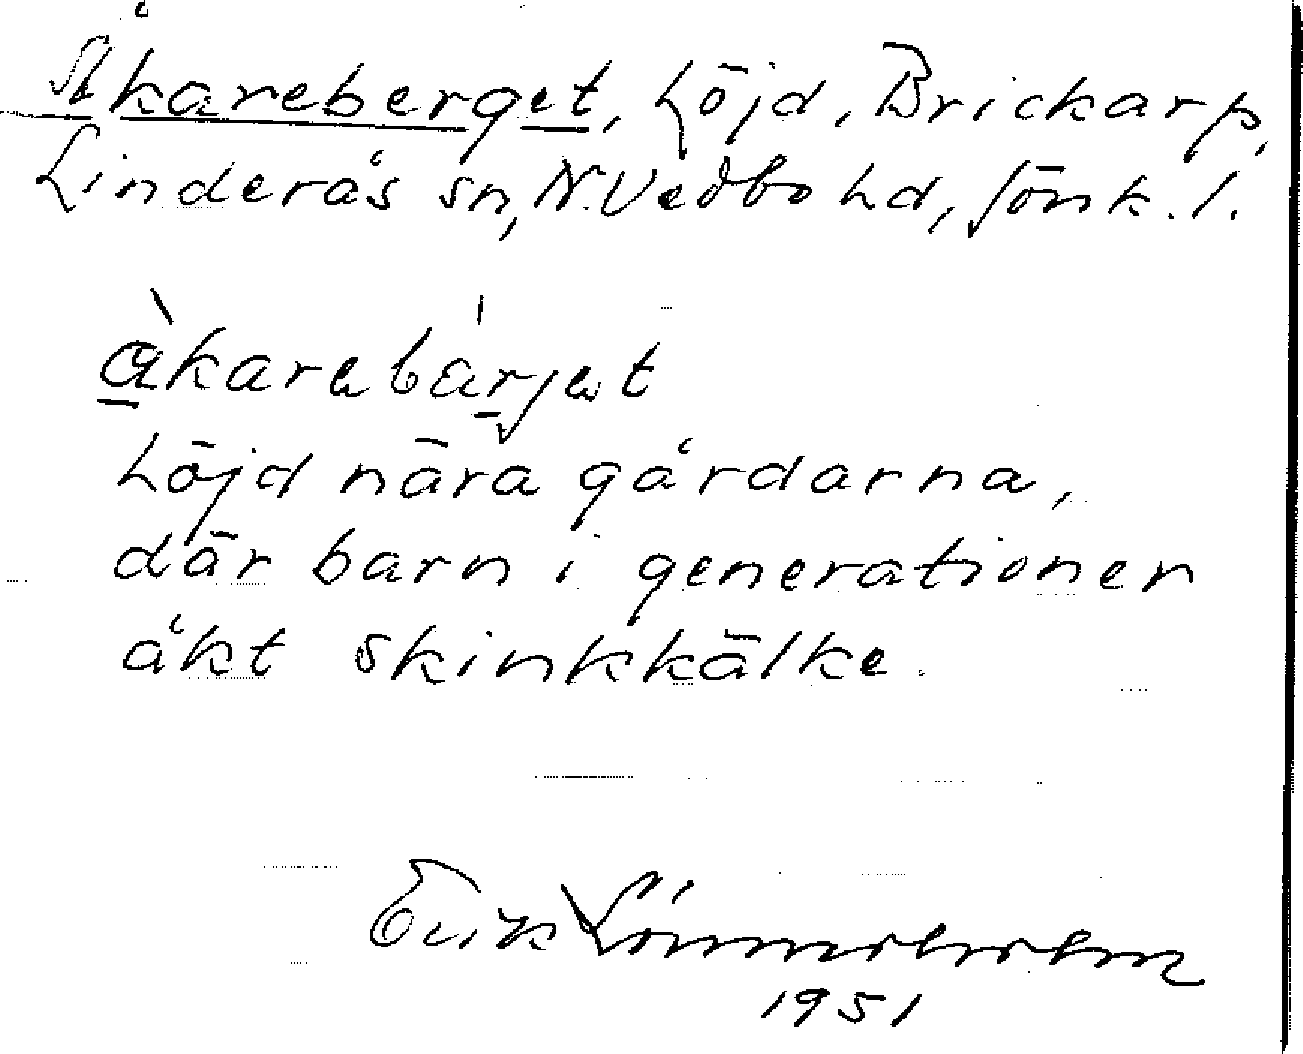 Åkareberget, höjd, Brickarp,
Linderås sn, N. Vedbo hd, Jönk. l.
àkarebárjet
höjd nära gårdarna,
där barn i generationer
åkt skinkkälke.
Erik
1951